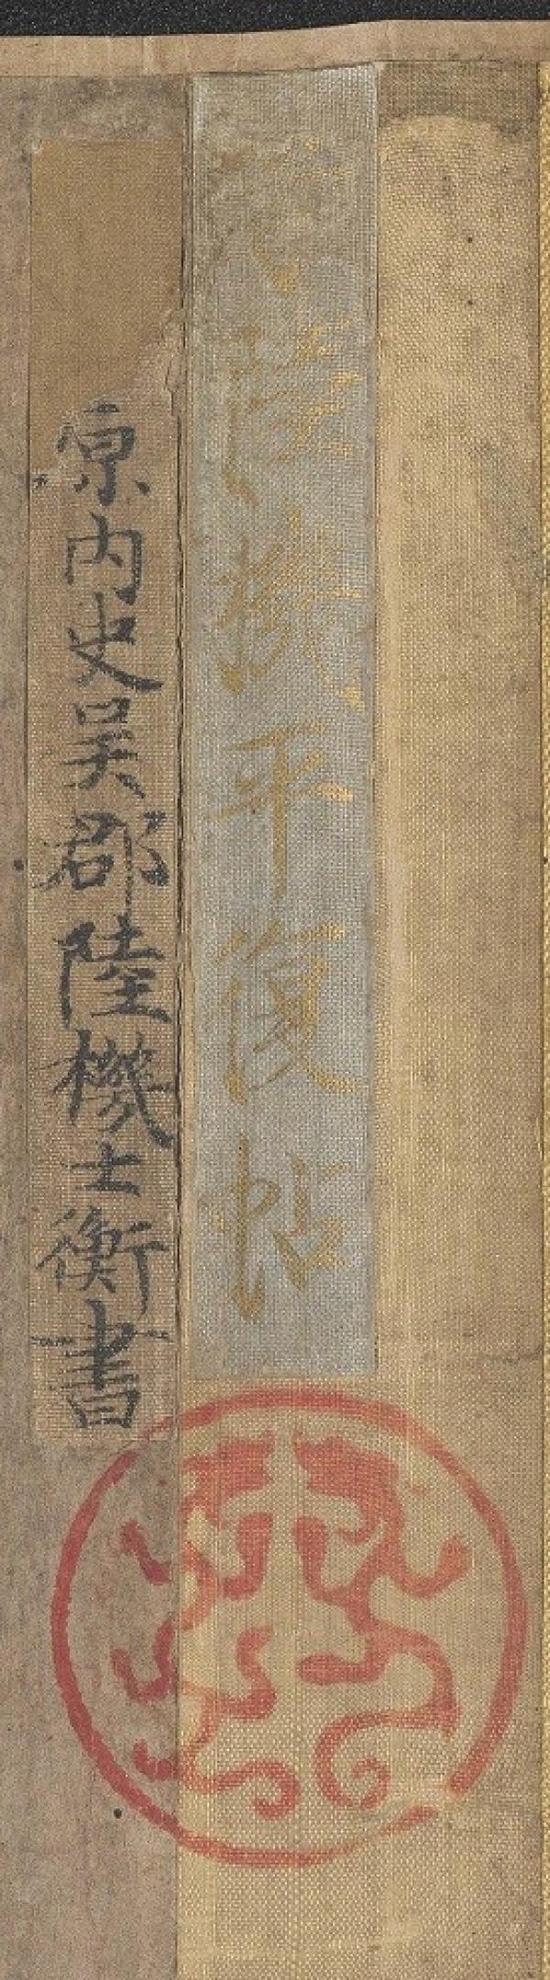 陸機平復帖
原内史吴郡陸機士衡書